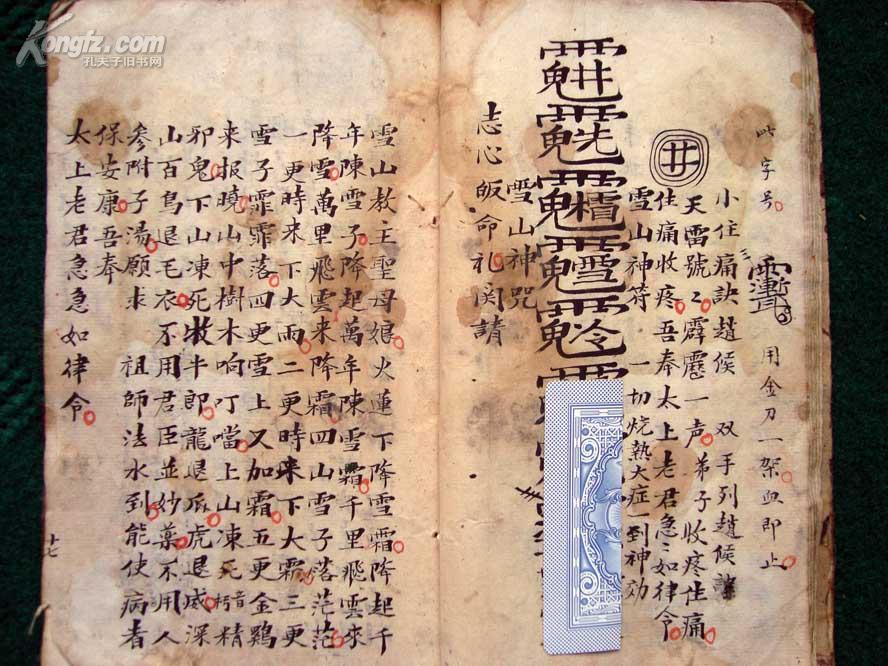 Kongfz.com
孔夫子旧书网
此字号
用金刀一架血即止
小住痛訣趙候 双手列趙候訣
天雷號〻霹靂一声弟子收疼住痛
住痛收疼吾奉太上老君急〻如律令
雪山神符 一切烧热大症一到神効
雪山神咒
志心皈命礼 関請
雪山教主聖母娘火蓮下降雪霜降起千
年陳雪子降起萬年陳雪霜千里飛雲來
降雪萬里飛雲来降霜四山雪子落茫茫
一更時来下大雨二更時来下大霜三更
雪子霏霏落四更雪上又加霜五更金鷄
来报曉山中樹木响叮噹上山凍死精
邪鬼下山凍死牛郎龍退爪虎退威深
山百鳥退毛衣不用君臣並妙藥不用人
參附子湯願求 祖師法水到能使病者
保安康吾奉
太上老君急急如律令
十七